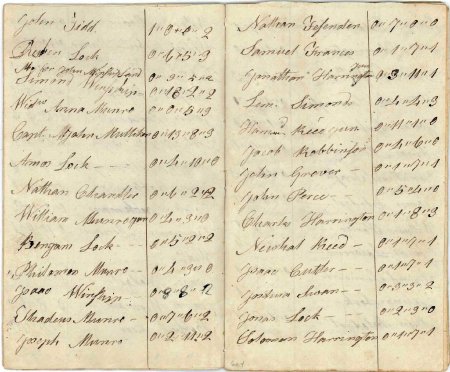 John Tidd 1"8"0"2
Reuben Lock 0"6"5"3
Simons Winship 0"18"2"2
Wid Anna Munro 0"0"5"9
Capt. John Mulliken 0"13"8"3
Amos Lock - - 0"4"10"0
Nathan Chandler 0"6"2"2
William Munro 0"2"3"0
Bengam Lock - 0"5"2"2
Philemon Munro - 0"4"9"0
Isaac Winship 0"8"6"12
Thadeus Munro - 0"7"6"2
Joseph Munro 0"2"11"2
Nathan Fessenden 0"7"0"0
Samuel Frances 0"1"7"1
Jonathan Harrington Jun 0"3"11"1
Lem Simonds 0"2"4"3
Hammd Reed Jun 0"11"1"0
Jacob Robbinson 0"4"6"0
John Grover - 0"1"7"1
John Perce - 0"5"4"0
Charles Harrington 0"1"8"3
Newhal Reed - 0"1"7"1
Isaac Cutler - - 0"1"7"1
Joshua Swan - - 0"3"3"2
Jonas Lock - 0"2"3"0
Solomon Harrington 0"1"7"1